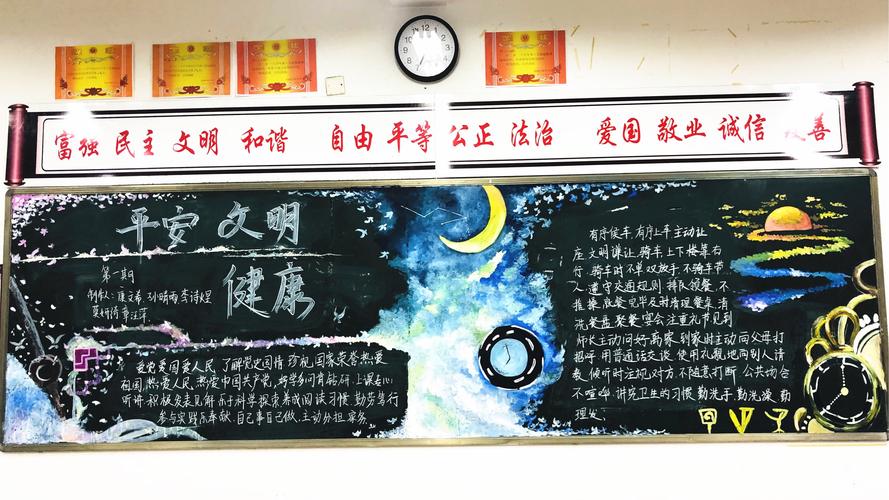 富强 民主 文明 和谐 自由 平等 公正 法治 爱国 敬业 诚信 友善
平安 文明
健康
第一期
制作人：康文希 孙晴雨 李诗煜
章汪萍
要党爱国爱人民,了解党史国情 珍视国家荣誉,热爱
祖国,热爱人民,热爱中国共产党,好学多问肯钻研,上课专心
听讲 积极发表见解 乐于科学探索 养成阅读习惯,勤劳笃行
参与实践乐奉献,自己事自己做,主动分担 家务
有序候车,有序上车主动让
座 文明谦让,骑车 上下楼靠右
行,骑车时不单双放手 不骑车带
人 遵守交通规则 排队领餐,不
推操 就餐完毕及时清理餐桌 清
洗餐盘 聚餐 宴会 注重礼节 见到
师长主动问好 到家时主动向父母打
招呼 用普通话交谈 使用礼貌地向别人请
教 倾听时注视对方,不随意打断 公共场合
不喧哗 讲究卫生的习惯 勤洗手 勤洗澡 勤
理发